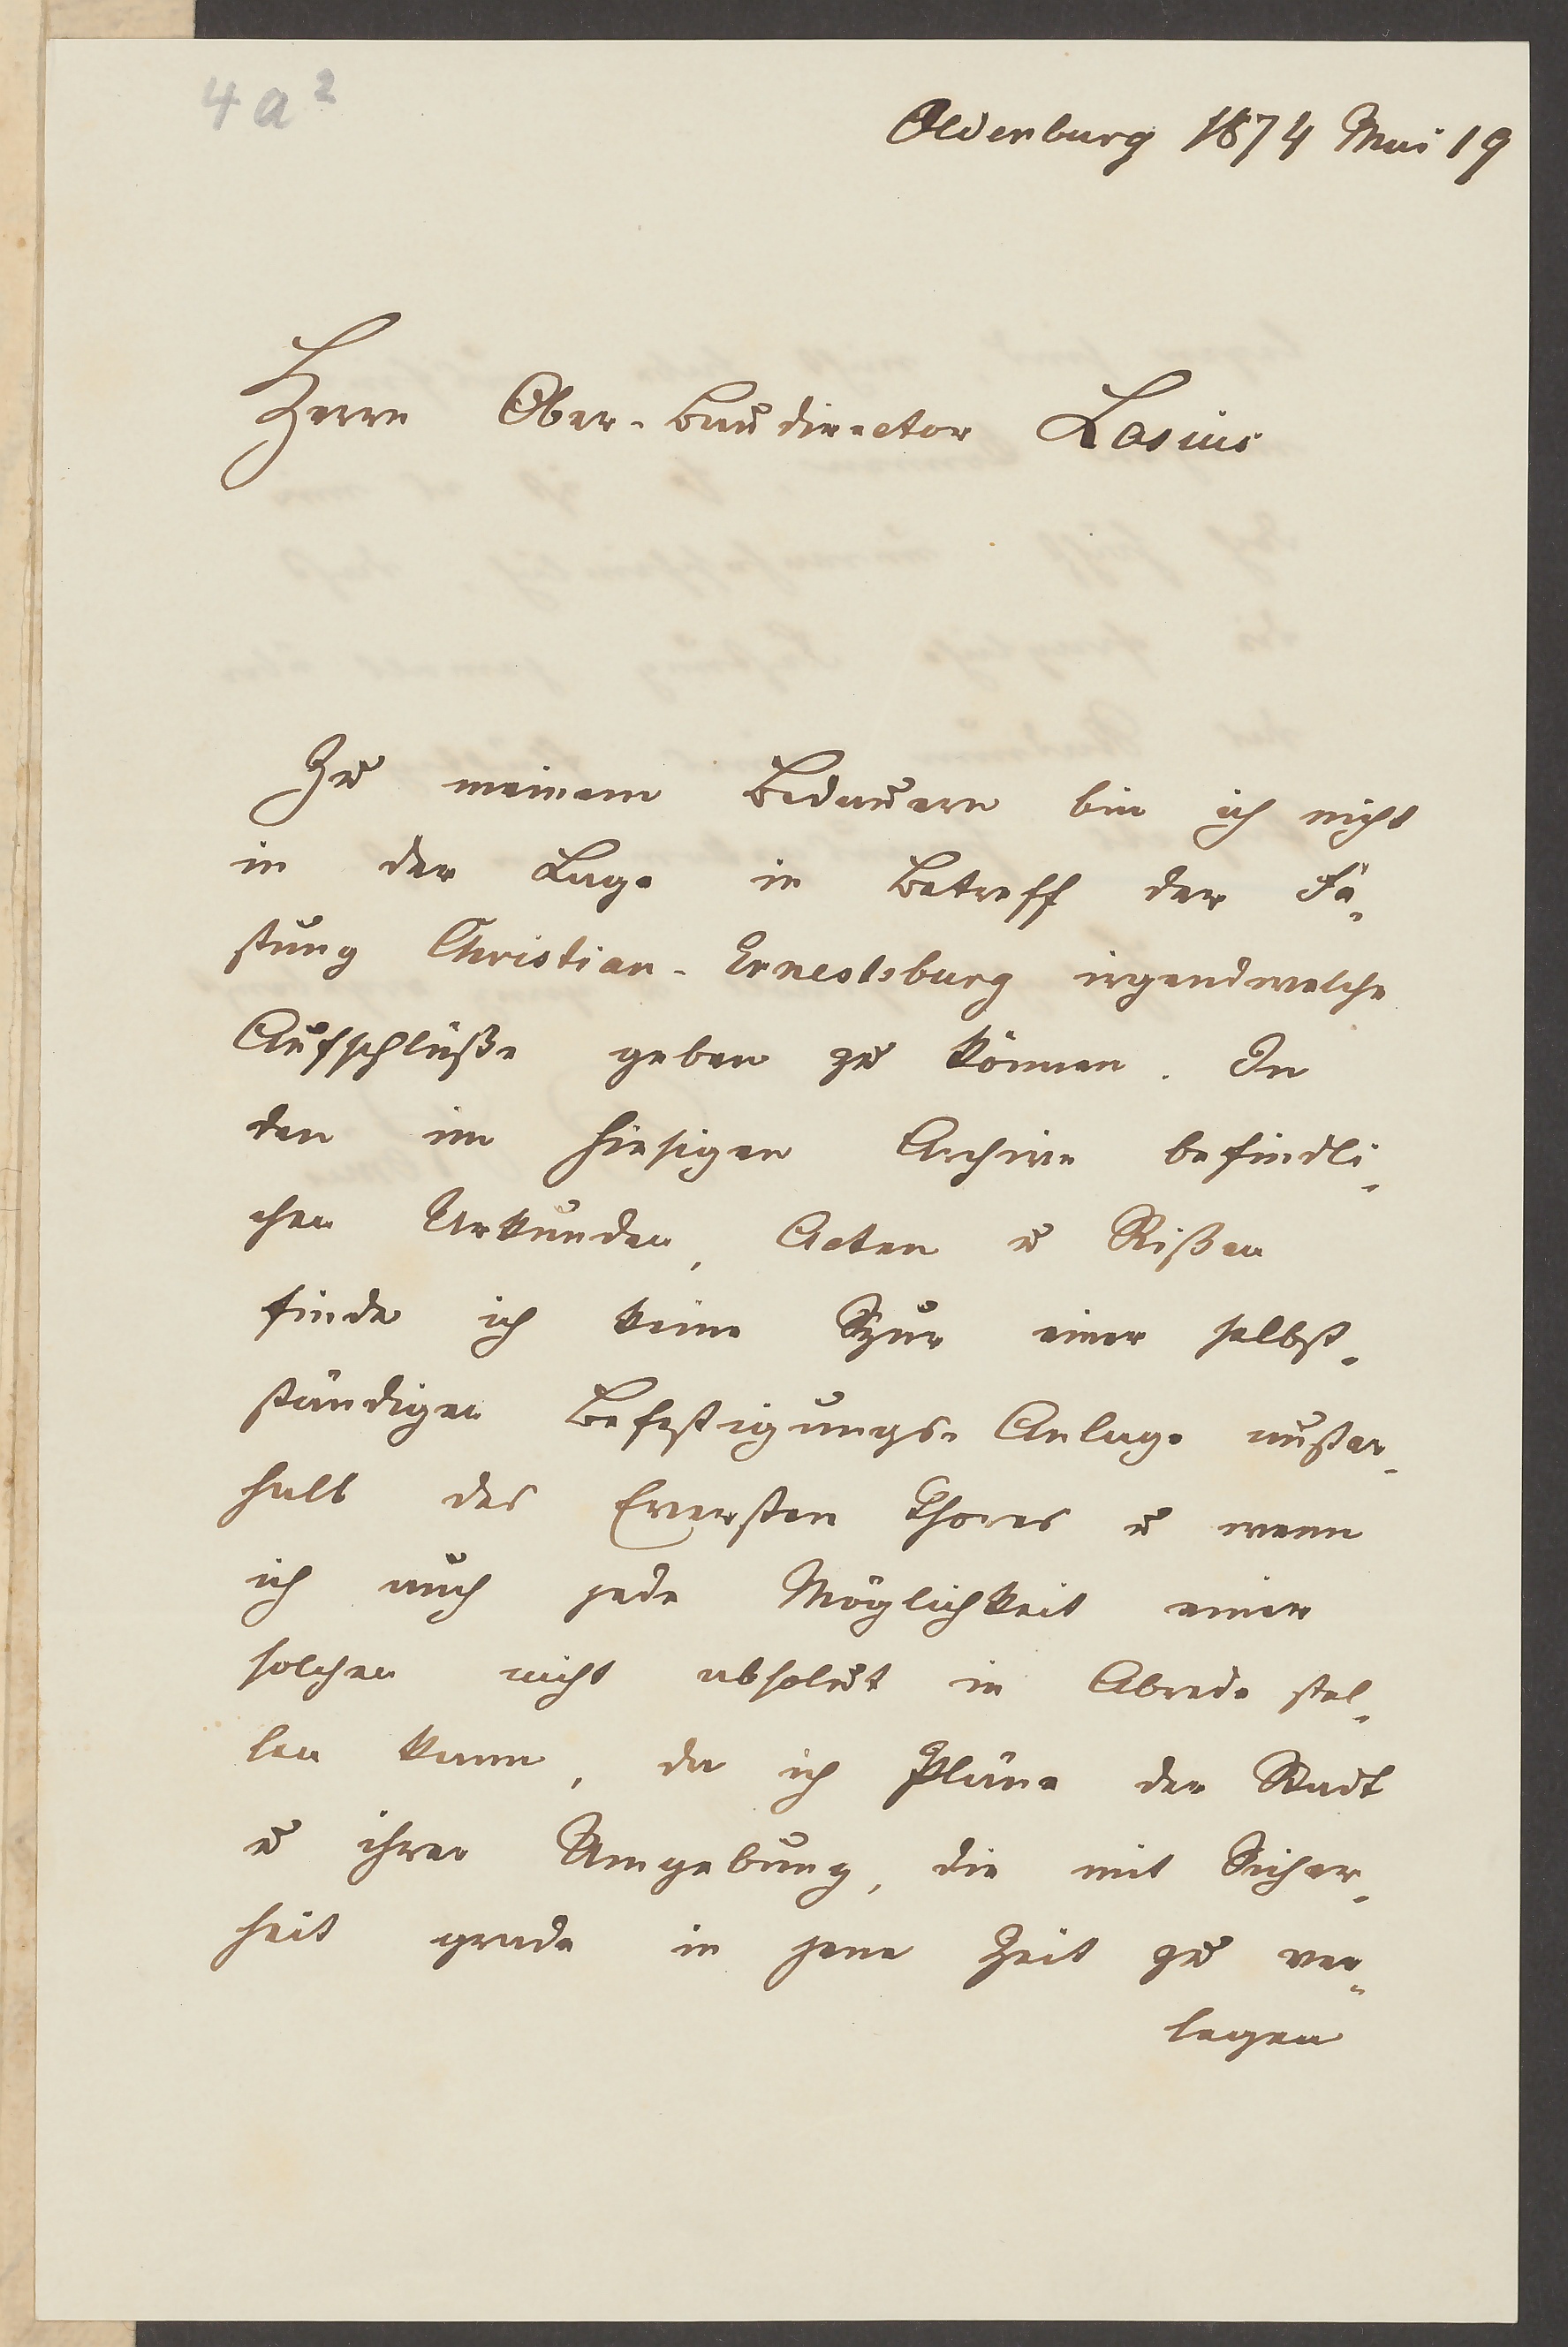 4a²
Oldenburg 1874 Mai 19
Herrn Ober-Baudirector Lasius
Zu meinem Bedauern bin ich nicht
in der Lage in Betreff der Fe-
stung Christian-Ernestsburg irgendwelche
Aufschlüße geben zu können. In
den im hiesigen Archive befindli-
chen Urkunden, Acten u Rißen
finde ich keine Spur einer selbst-
ständigen Befestigungs-Anlage außer-
halb des Eversten Thores u wenn
ich auch jede Möglichkeit einer
solchen nicht absolut in Abrede stel-
len kann, da ich Pläne der Stadt
u ihrer Umgebung, die mit Sicher-
heit grade in jene Zeit zu ver-
legen